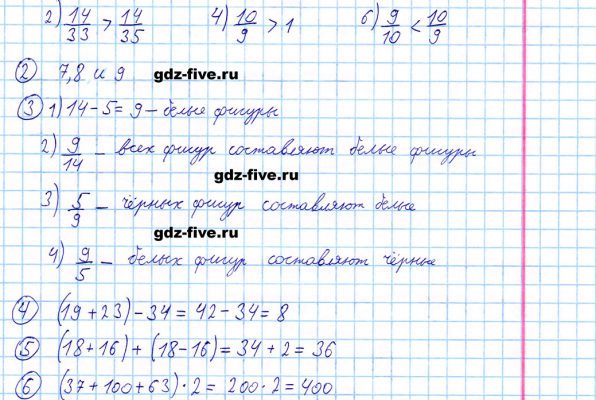 2) 14/33 > 14/35 4) 10/9 > 1 6) 9/10 < 10/9
2 7,8 и 9 gdz-five.ru
3 1) 14 - 5 = 9 - белые фигуры
2) 9/14 - всех фигур составляют белые фигуры
gdz-five.ru
3) 5/9 - чёрных фигур составляют белые
gdz-five.ru
4) 9/5 - белых фигур составляют чёрные
4 (19 + 23) - 34 = 42 - 34 = 8
5 (18 + 16) + (18 - 16) = 34 + 2 = 36
6 (37 + 100 + 63) · 2 = 200 · 2 = 400